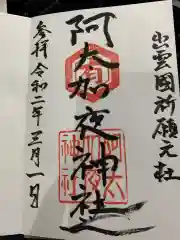 出雲國祈願元社
阿太加夜神社
参拝 令和二年三月一日